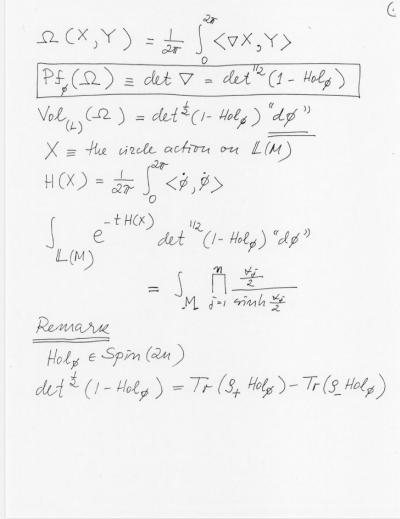 (
Ω(X,Y) = 1/2π ∫₀^2π <∇X,Y>
Pf_ϕ(Ω) ≡ det ∇ = det^1/2 (1 - Hol_ϕ)
Vol_(L)(Ω) = det^1/2 (1 - Hol_ϕ) "dϕ"
X ≡ the circle action on 𝕃(M)
H(X) = 1/2π ∫₀^2π <ϕ̇, ϕ̇>
∫_𝕃(M) e^-tH(X) det^1/2 (1 - Hol_ϕ) "dϕ"
= ∫_M ∏_{j=1}^n (x_j/2)/(sinh x_j/2)
Remark
Hol_ϕ ∈ Spin(2n)
det^1/2 (1 - Hol_ϕ) = Tr(ρ₊ Hol_ϕ) - Tr(ρ₋ Hol_ϕ)